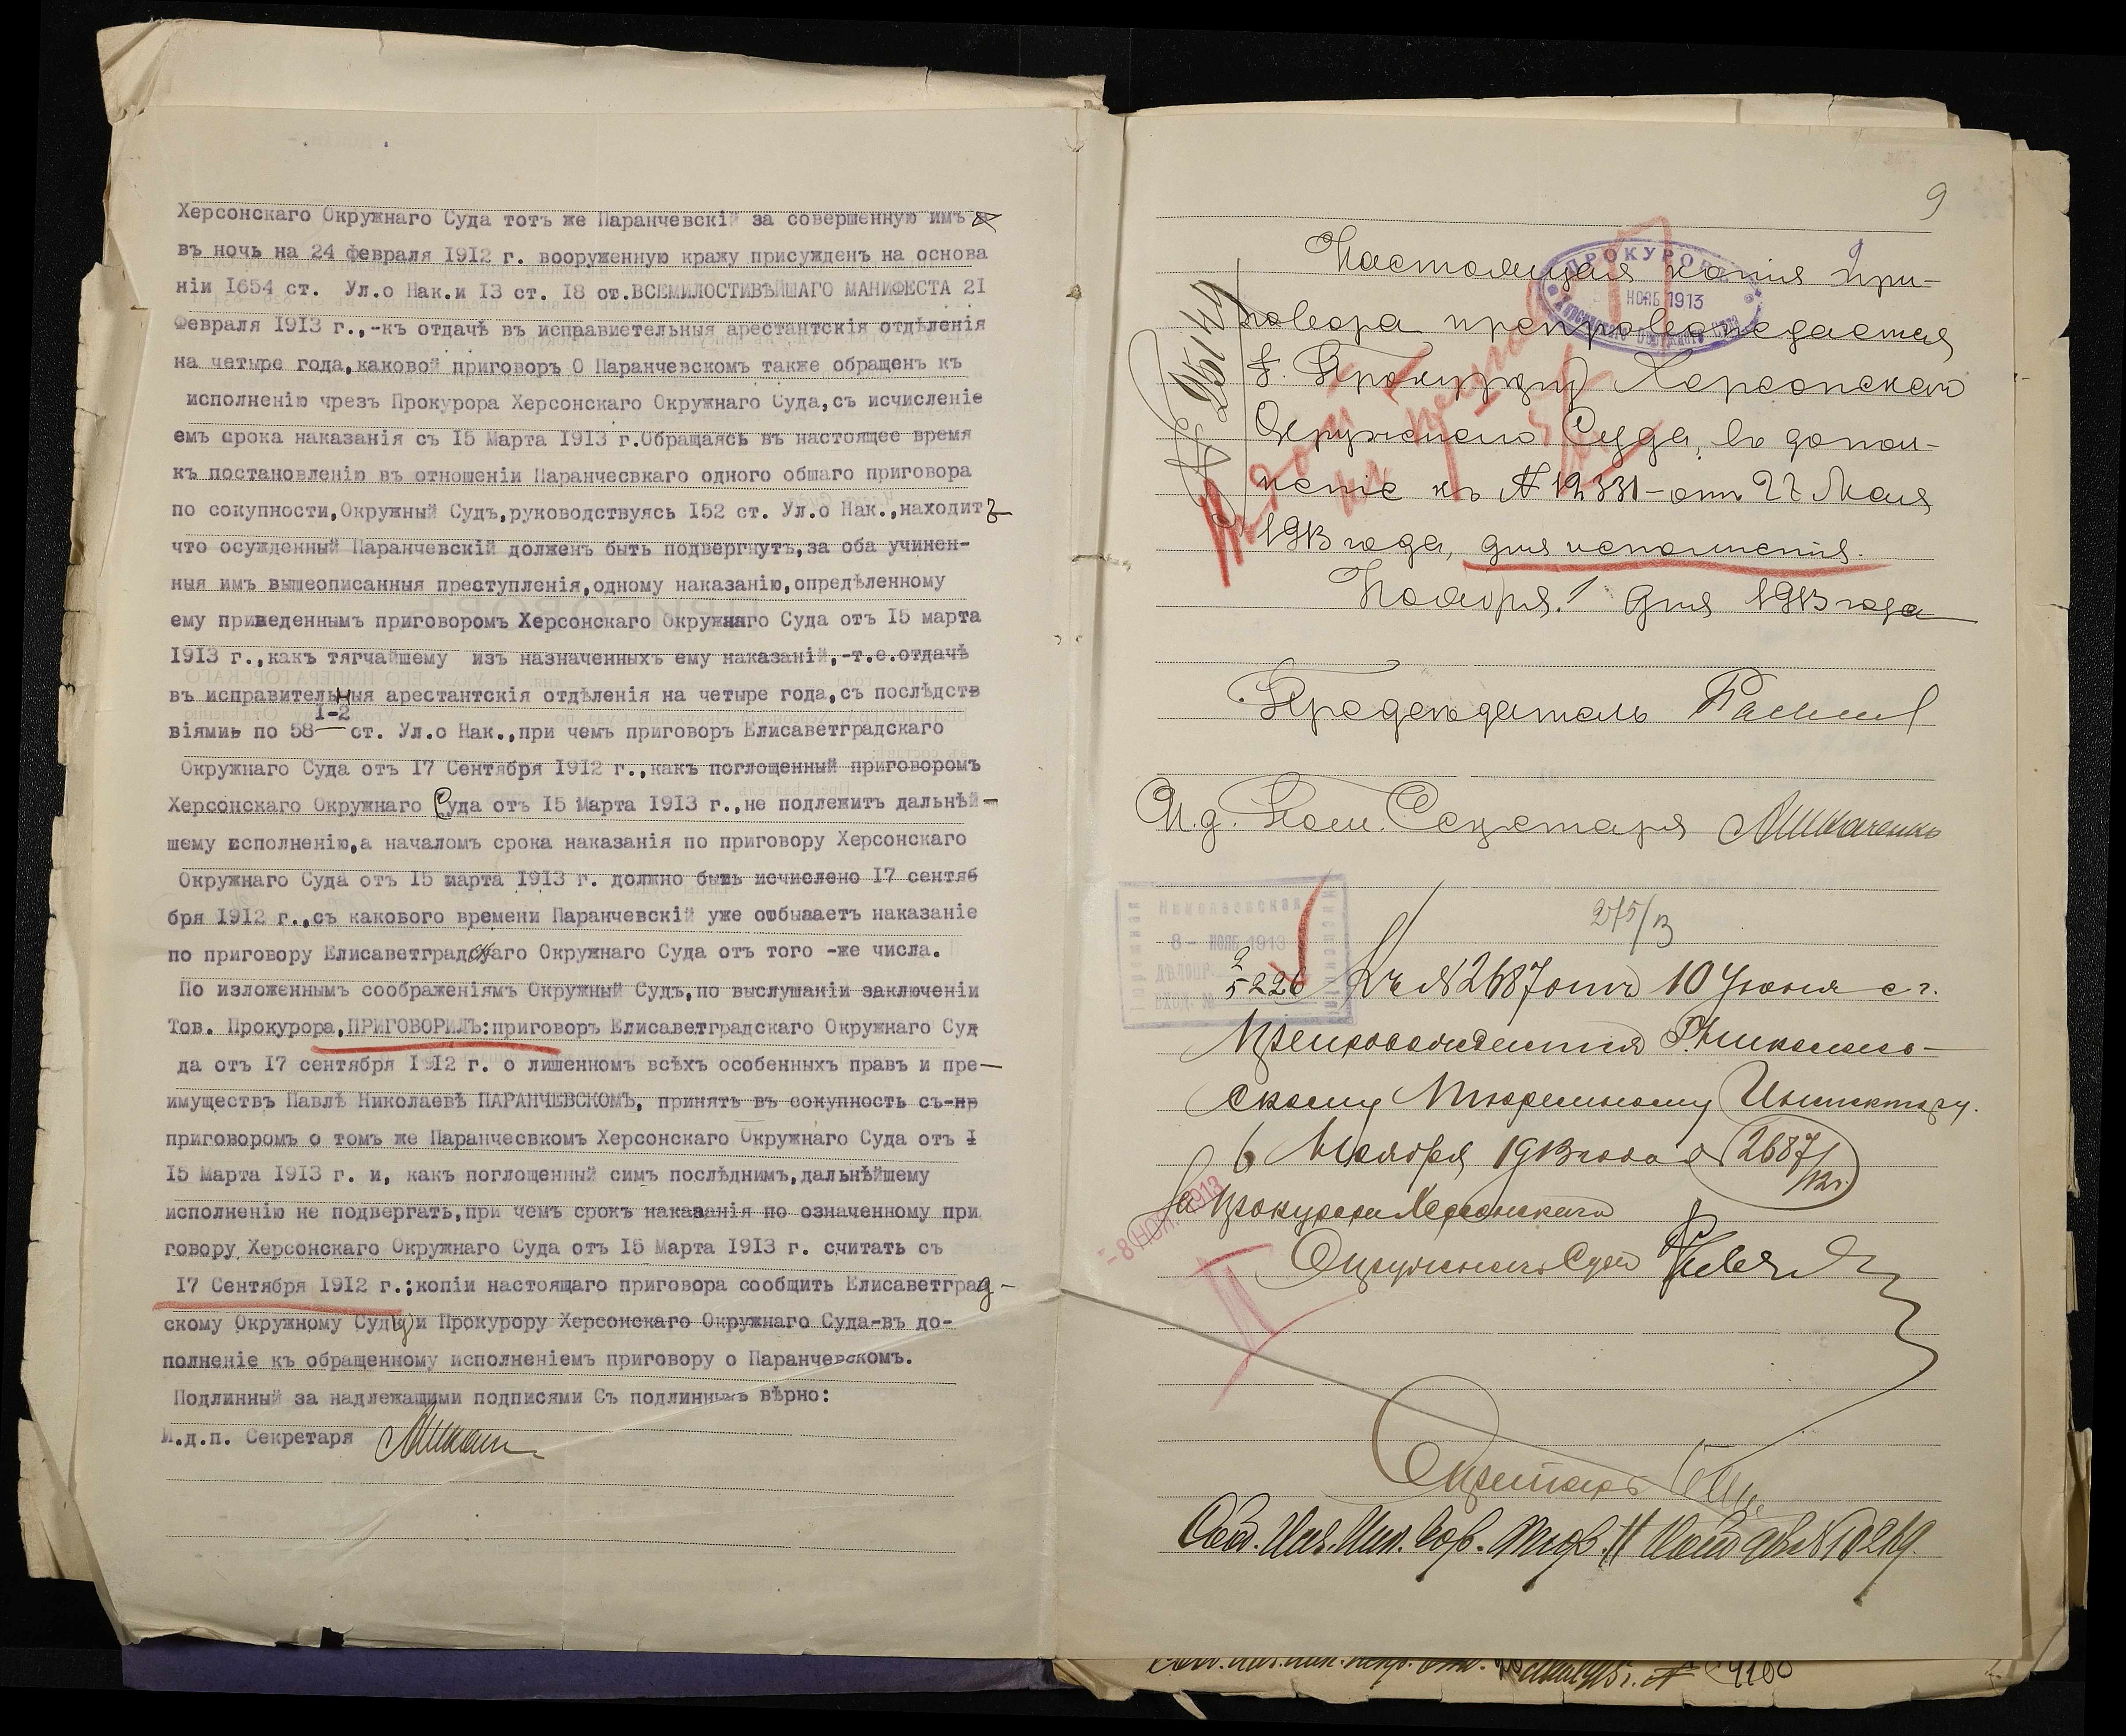 Херсонскаго Окружнаго Суда тотъ же Паранчевскій за совершенную имъ
въ ночь на 24 февраля 1912 г. вооруженную кражу присужденъ на основа
ніи I654 ст. Ул.о Нак.и I3 ст. I8 от.ВСЕМИЛОСТИВѢЙШАГО МАНИФЕСТА 2I
Февраля I9I3 г.,-къ отдачѣ въ исправиетельныя арестантскія отдѣленія
на четыре года,каковой приговоръ О Паранчевскомъ также обращенъ къ
исполненію чрезъ Прокурора Херсонскаго Окружнаго Суда,съ исчисленіе
емъ срока наказанія съ I5 Марта I9I3 г.Обращаясь въ настоящее время
къ постановленію въ отношеніи Паранчесвкаго одного общаго приговора
по сокупности,Окружный Судъ,руководствуясь I52 ст. Ул.о Нак.,находитъ
что осужденный Паранчевскій долженъ быть подвергнутъ,за оба учинен-
ныя имъ вышеописанныя преступленія,одному наказанію,опредѣленному
ему приведеннымъ приговоромъ Херсонскаго Окружнаго Суда отъ I5 марта
I9I3 г.,какъ тягчайшему изъ назначенныхъ ему наказаній,-т.е.отдачѣ
въ исправительныя арестантскія отдѣленія на четыре года,съ послѣдств
I-2
віями по 58 ст. Ул.о Нак.,при чемъ приговоръ Елисаветградскаго
Окружнаго Суда отъ I7 Сентября I9I2 г.,какъ поглощенный приговоромъ
Херсонскаго Окружнаго Суда отъ I5 Марта I9I3 г.,не подлежитъ дальнѣй-
шему исполненію,а началомъ срока наказанія по приговору Херсонскаго
Окружнаго Суда отъ I5 марта I9I3 г. должно быть исчислено I7 сентяб
бря I9I2 г.,съ какового времени Паранчевскій уже отбываетъ наказаніе
по приговору Елисаветградскаго Окружнаго Суда отъ того -же числа.
По изложеннымъ соображеніямъ Окружный Судъ,по выслушаніи заключеніи
Тов. Прокурора,ПРИГОВОРИЛЪ:приговоръ Елисаветградскаго Окружнаго Суд
да отъ I7 сентября I9I2 г. о лишенномъ всѣхъ особенныхъ правъ и пре-
имуществъ Павлѣ Николаевѣ ПАРАНЧЕВСКОМЪ, принять въ сокупность съ-пр
приговоромъ о томъ же Паранчесвкомъ Херсонскаго Окружнаго Суда отъ I
I5 Марта I9I3 г. и, какъ поглощенный симъ послѣднимъ,дальнѣйшему
исполненію не подвергать,при чемъ срокъ наказанія по означенному при
говору Херсонскаго Окружнаго Суда отъ I5 Марта I9I3 г. считать съ
I7 Сентября I9I2 г.;копіи настоящаго приговора сообщить Елисаветград-
скому Окружному Суду и Прокурору Херсонскаго Окружнаго Суда-въ до-
полненіе къ обращенному исполненіемъ приговору о Паранчевскомъ.
Подлинный за надлежащими подписями Съ подлиннымъ вѣрно:
И.д.п. Секретаря
9
ПРОКУРОРЪ
НОЯБ 1913
Херсонскаго Окружнаго Суда
Настоящая копія при-
говора препровождается
Г. Прокурору Херсонскаго
Окружнаго Суда, въ допол-
неніе къ № 12331 - отъ 27 Мая
1913 года, для исполненія.
Ноября 1 дня 1913 года
Предсѣдатель
И.д. Пом. Секретаря
275/13
Николаевская
8 - НОЯБ 1913
ВХОД. №
5226
Къ №2687 отъ 10 Іюня с г.
Препровождается Г. Николаев-
скому Тюремному Инспектору.
6 Ноября 1913 года № 2687/12г.
За Прокурора Херсонскаго
- 8 НОЯ. 1913
Окружнаго Суда
Секретарь